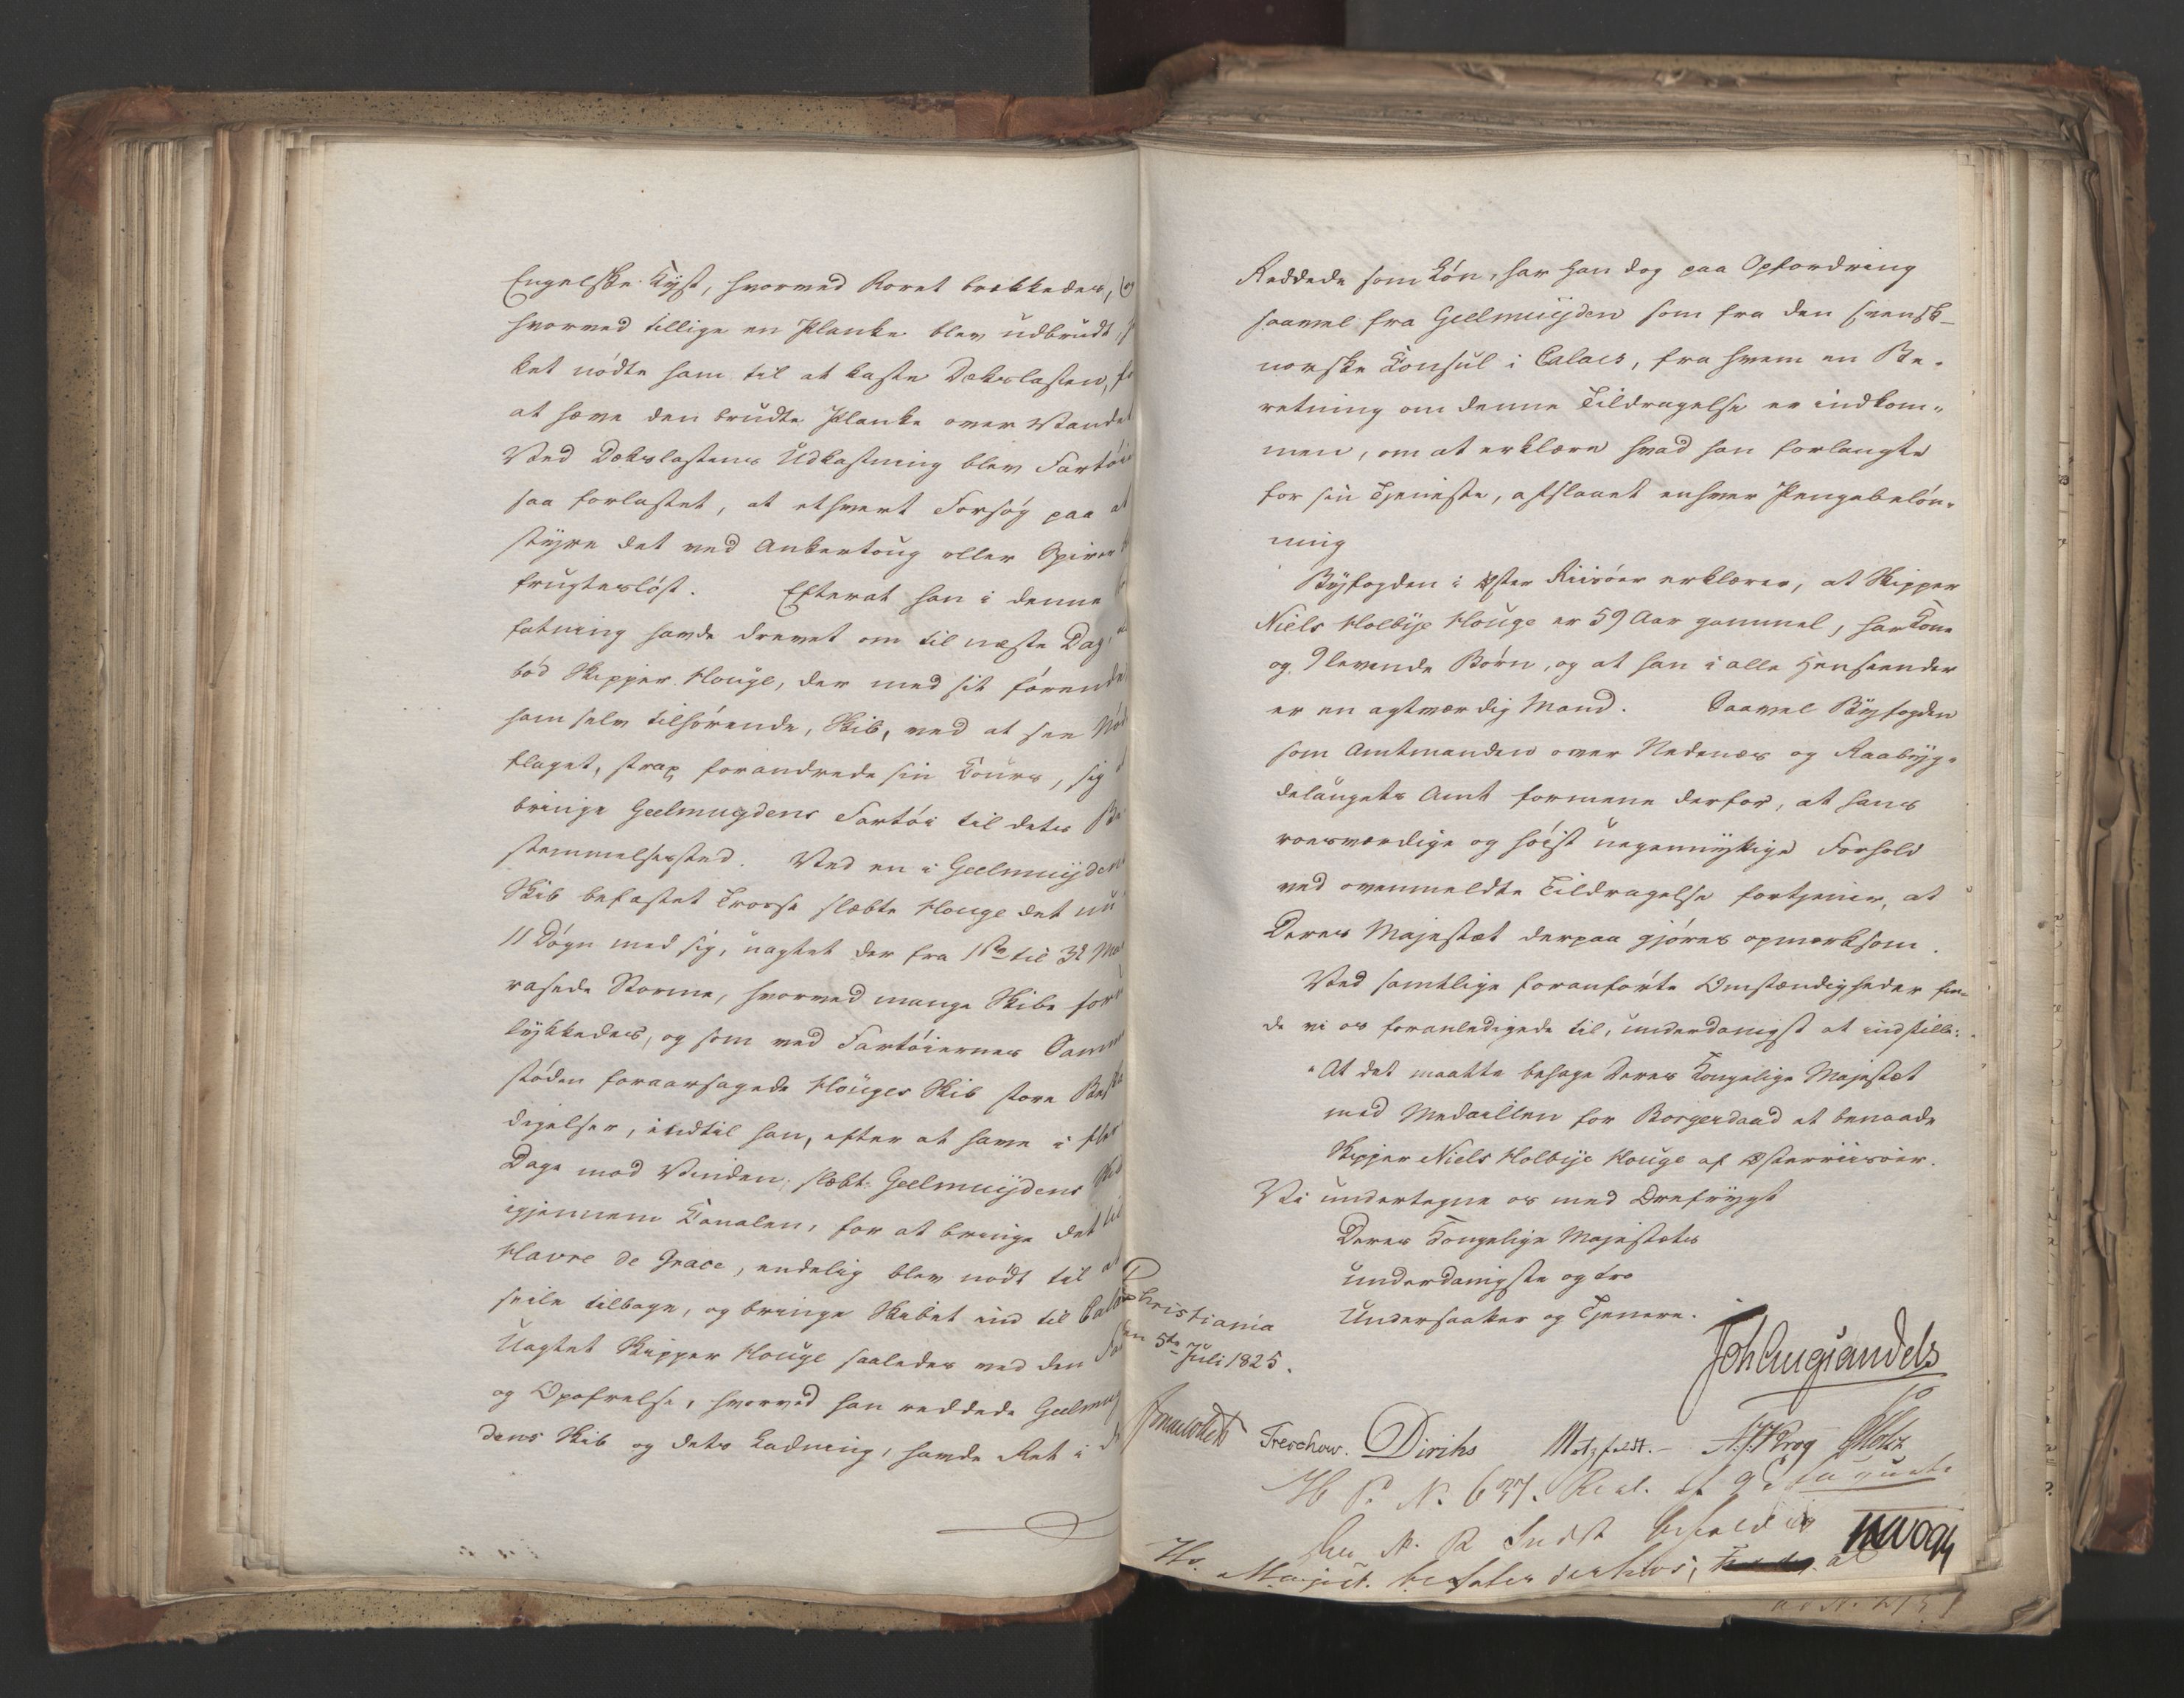 Engelske Kyst, hvorved Roret brækkedes, og
hvorved tillige en Planke blev udbrudt,
ket nødte ham til at kaste Dækslasten,
at hæve den brudte Planke over Vandet
Ved Dækslastens Udkastning blev Fartöi
saa forlastet, at ethvert Forsög paa at
styre det ved Ankertoug eller Spirer
frugteslöst. Efterat han i denne
fatning havde drevet om til næste Dag,
bód Skipper Houge, der med sit förende
ham selv tilhörende, Skib, ved at see Nöd
flaget, strax forandrede sin Cours, sig
bringe Geelmuydens Fartöi til dets Be
stemmelsessted. Ved en i Geelmuydens
Skib befæstet Trosse slæbte Houge det nu
11 Dögn med sig, uagtet der fra 1ste til 3d
rasede Storme, hvorved mange Skibe for
lykkedes, og som ved Fartöiernes Samm
stöden foraarsagede Houges Skib store Beska
digelser, indtil han, efter at have i flere
Dage mod Vinden, slæbt Geelmuydens Skib
igjennem Canalen, for at bringe det til
Havre de Grace, endelig blev nödt til at
seile tilbage, og bringe Skibet ind til Calais
Uagtet Skipper Houge saaledes ved den
og Opofrelse, hvorved han reddede Geelmuy
dens Skib og dets Ladning, havde Ret i
Reddede som Lön, har han dog paa Opfordring
saavel fra Geelmuyden som fra den svensk-
norske Consul i Calais, fra hvem en Be-
retning om denne Tildragelse er indkom-
men, om at erklære hvad han forlangte
for sin Tjeneste, afslaaet enhver Pengebelön-
ning
Byfogden i Öster Riisöer erklærer, at Skipper
Niels Holbye Houge er 59 Aar gammel, har Kone
og 9 levende Börn, og at han i alle Henseender
er en agtværdig Mand. Saavel Byfogden
som Amtmanden over Nedenæs og Raabyg-
delaugets Amt formene derfor, at hans
roesværdige og höist uegennyttige Forhold
ved ovenmeldte Tildragelse fortjener, at
Deres Majestæt derpaa gjöres opmærksom.
Ved samtlige foranförte Omstændigheder fin-
de vi os foranledigede til, underdanigst at indstille:
"At det maatte behage Deres Kongelige Majestæt
med Medaillen for Borgerdaad at benaade
Skipper Niels Holbye Houge af Österriisöer.
Vi undertegne os med Ærefrygt
Deres Kongelige Majestæts
underdanigste og tro
Undersaatter og Tjenere.
Christiania
den 5te Juli 1825.
Treschow. Diriks Motzfeldt. Krog Holst
No 637. Resol. af
Hs. Majest. befales derhos, at